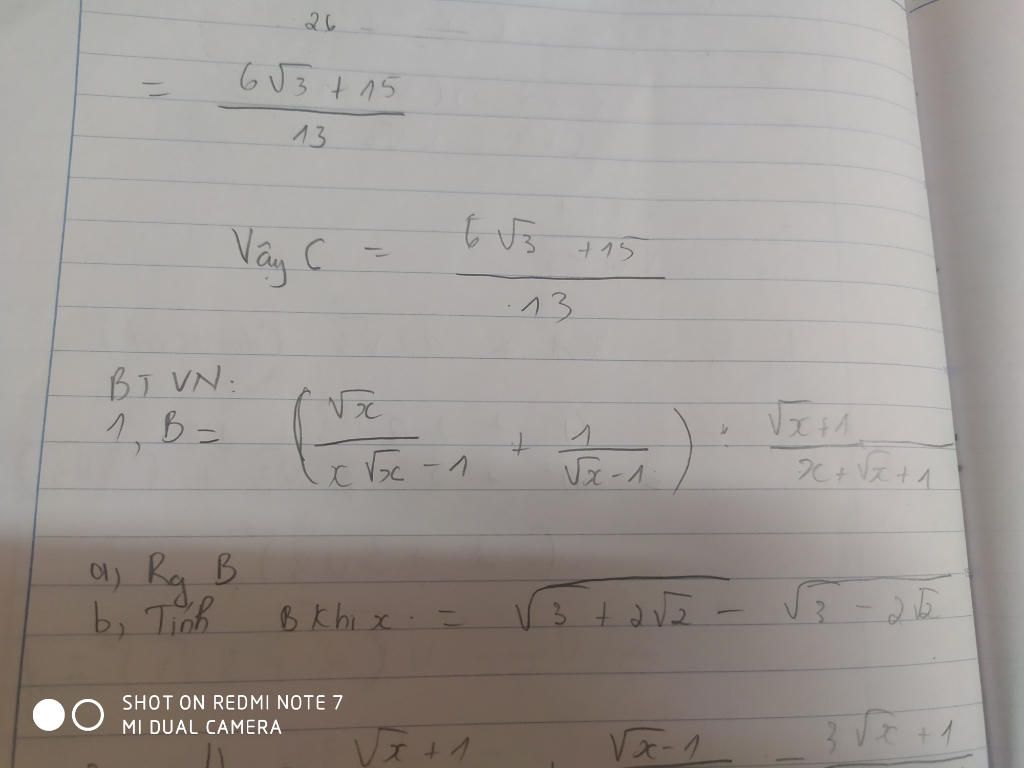 26
= (6√3 + 15)/13
Vậy C = (6√3 + 15)/13
BTVN:
1, B = (√x/(x√x - 1) + 1/(√x - 1)) : (√x + 1)/(x + √x + 1)
a, Rg B
b, Tính B khi x = √(3 + 2√2) - √(3 - 2√2)
SHOT ON REDMI NOTE 7
MI DUAL CAMERA
√x + 1 √x - 1 - 3√x + 1